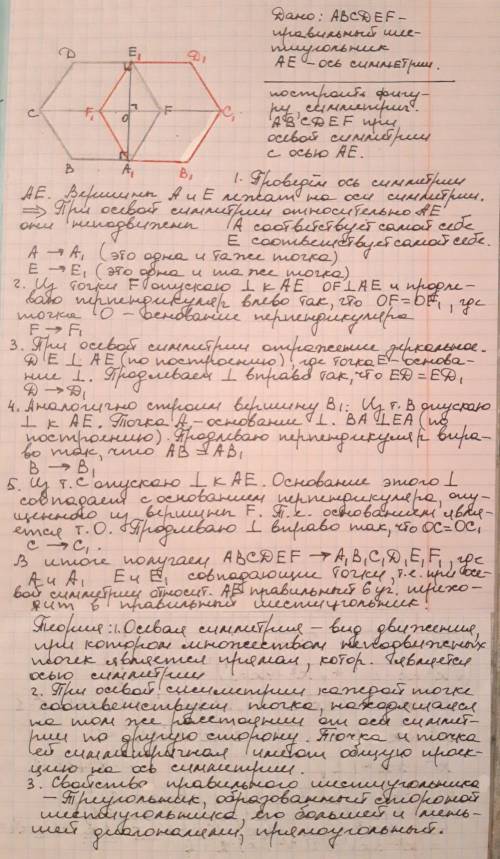 D E₁ D₁
C F₁ O F C₁
B A₁ B₁
Дано: ABCDEF –
правильный шес-
тиугольник
AE – ось симметрии.
построить фигу-
ру, симметрич.
ABCDEF при
осевой симметрии
с осью AE.
1. Проведём ось симметрии
AE. Вершины A и E лежат на оси симметрии.
⇒ При осевой симметрии относительно AE
они неподвижны A соответствует самой себе
E соответствует самой себе.
A → A₁ (это одна и та же точка)
E → E₁ (это одна и та же точка)
2. Из точки F опускаю ⊥ к AE OF⊥AE и продле-
ваю перпендикуляр влево так, что OF = OF₁, где
точка O – основание перпендикуляра
F → F₁
3. При осевой симметрии отражение зеркальное.
DE ⊥ AE (по построению), где точка E – основа-
ние ⊥. Продлеваем ⊥ вправо так, что ED = ED₁
D → D₁
4. Аналогично строим вершину B₁: Из т. B опускаю
⊥ к AE. Точка A – основание ⊥. BA ⊥ EA (по
построению). Продлеваю перпендикуляр впра-
во так, что AB = AB₁
B → B₁
5. Из т. C опускаю ⊥ к AE. Основание этого ⊥
совпадает с основанием перпендикуляра, опу-
щенного из вершины F. Т.е. основанием явля-
ется т. O. Продлеваю ⊥ вправо так, что OC = OC₁
C → C₁.
В итоге получаем ABCDEF → A₁B₁C₁D₁E₁F₁, где
A и A₁ E и E₁ совпадающие точки, т.е. при осе-
вой симметрии относит. AE правильный 6 уг. перехо-
дит в правильный шестиугольник.
Теория: 1. Осевая симметрия – вид движения,
при котором множеством неподвижных
точек является прямая, котор. является
осью симметрии
2. При осевой симметрии каждой точке
соответствует точка, находящаяся
на том же расстоянии от оси симмет-
рии по другую сторону. Точка и точка
ей симметричная имеют общую проек-
цию на ось симметрии.
3. Свойство правильного шестиугольника
– Треугольник, образованный стороной
шестиугольника, его большей и мень-
шей диагоналями, прямоугольный.